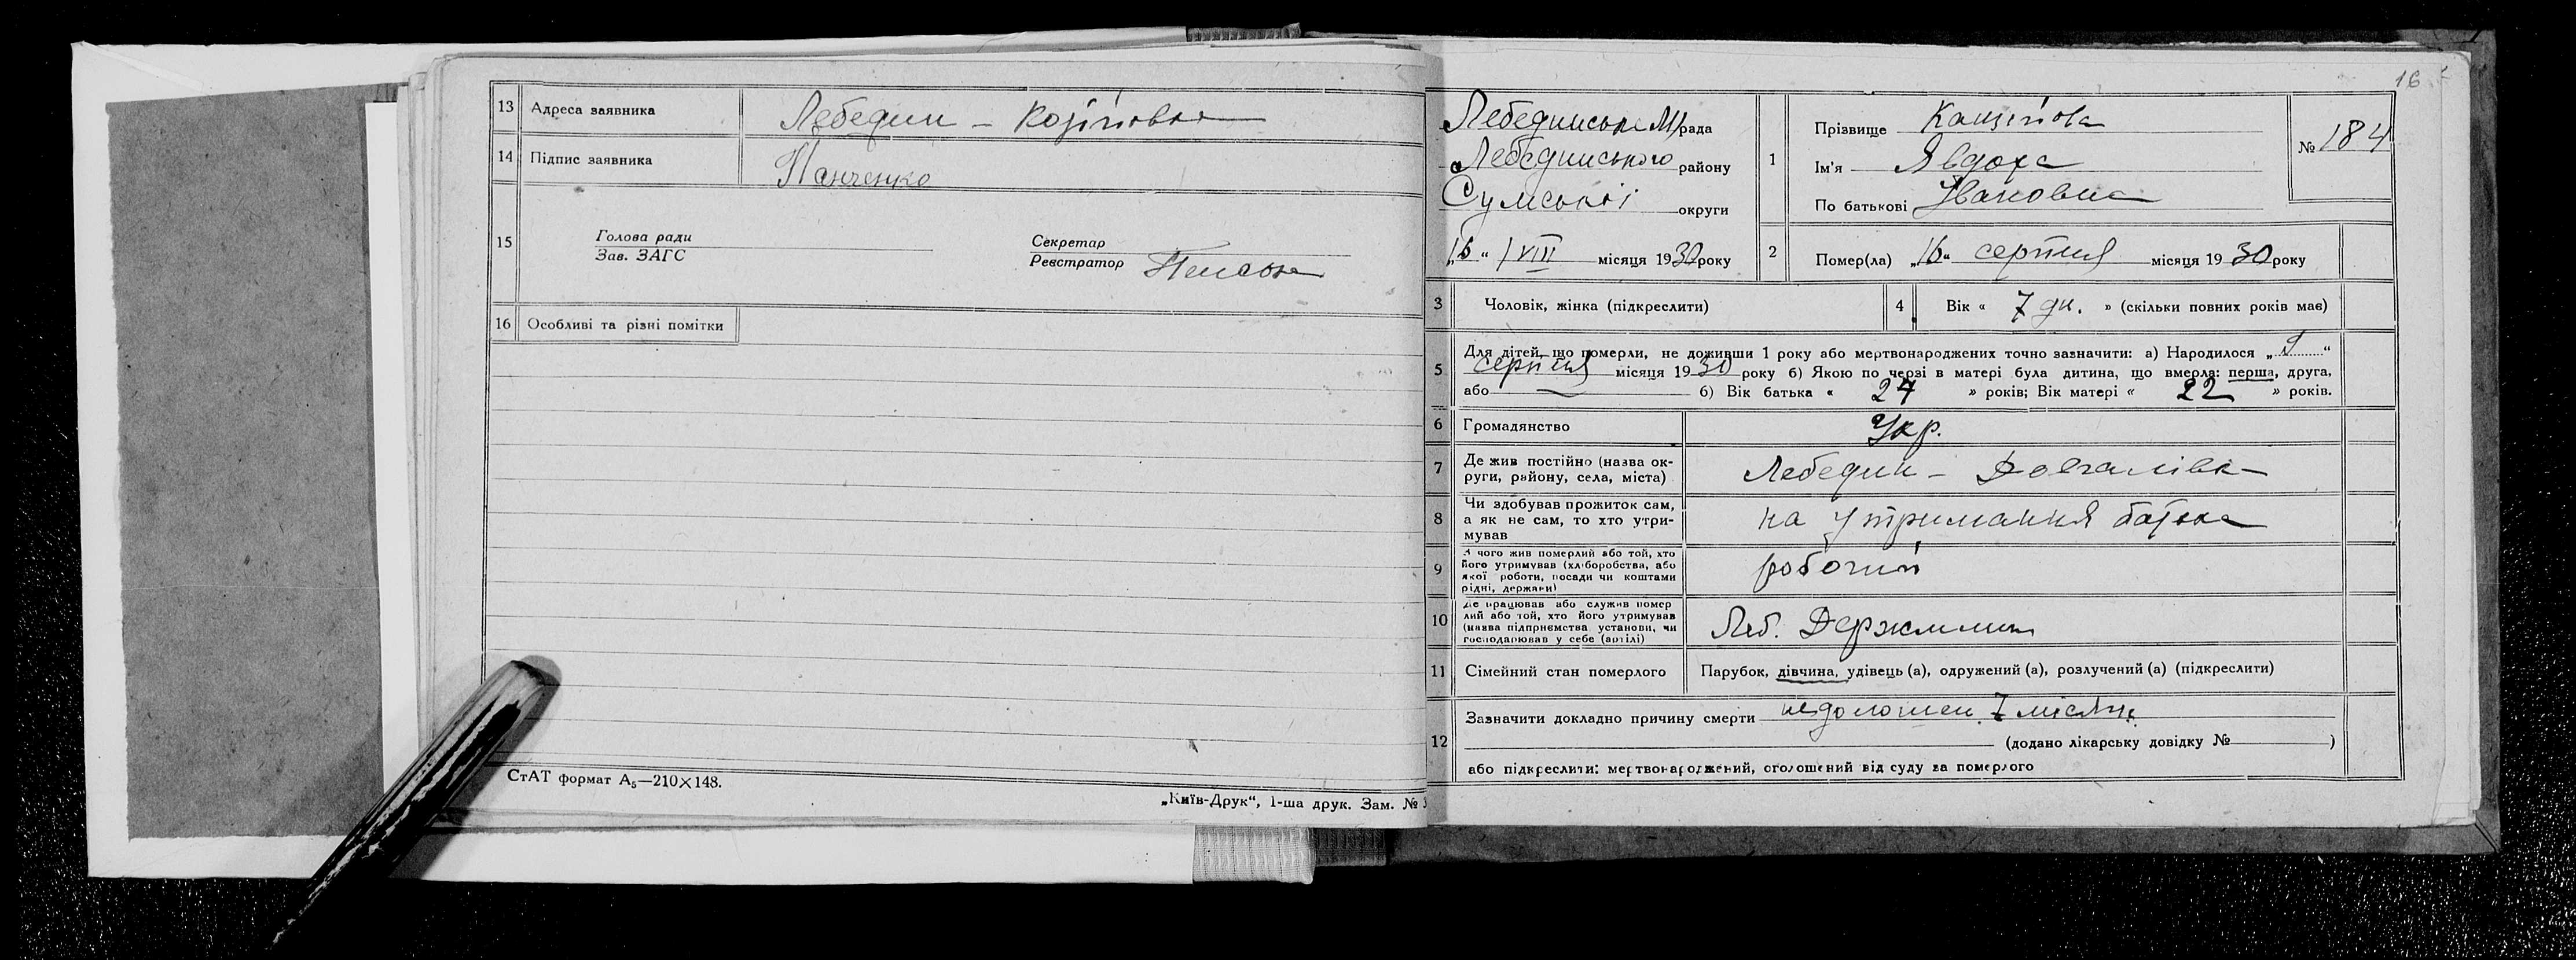 13 Адреса заявника Лебедин –
14 Підпис заявника Панченко
15 Голова ради
Зав. ЗАГС
Секретар
Реєстратор
16 Особливі та різні помітки
СтАТ формат А₅—210×148.
„Київ-Друк“, 1-ша друк. Зам. №
16
Лебединськ М/рада
Лебединського району
Сумської округи
„16“ / VIII місяця 1930 року
1 Прізвище
Ім'я Явдоха
По батькові Івановна
№ 184
2 Помер(ла) „16“ серпня місяця 1930 року
3 Чоловік, жінка (підкреслити)
4 Вік « 7 дн. » (скільки повних років має)
5 Для дітей, що померли, не доживши 1 року або мертвонароджених точно зазначити: а) Народилося „9“
серпня місяця 1930 року б) Якою по черзі в матері була дитина, що вмерла: перша, друга,
або — б) Вік батька « 27 » років; Вік матері « 22 » років.
6 Громадянство Укр.
7 Де жив постійно (назва ок-
руги, району, села, міста) Лебедин – Довгалівка
8 Чи здобував прожиток сам,
а як не сам, то хто утри-
мував на утримання батька
9 З чого жив померлий або той, хто
його утримував (хліборобства, або
якої роботи, посади чи коштами
рідні, держави) робочий
10 Де працював або служив помер
лий або той, хто його утримував
(назва підприємства установи, чи
господарював у себе (артілі) Леб. Держмлин
11 Сімейний стан померлого Парубок, дівчина, удівець (а), одружений (а), розлучений (а) (підкреслити)
12 Зазначити докладно причину смерти 7 місяч.
(додано лікарську довідку № )
або підкреслити: мертвонароджений, оголошений від суду за померлого